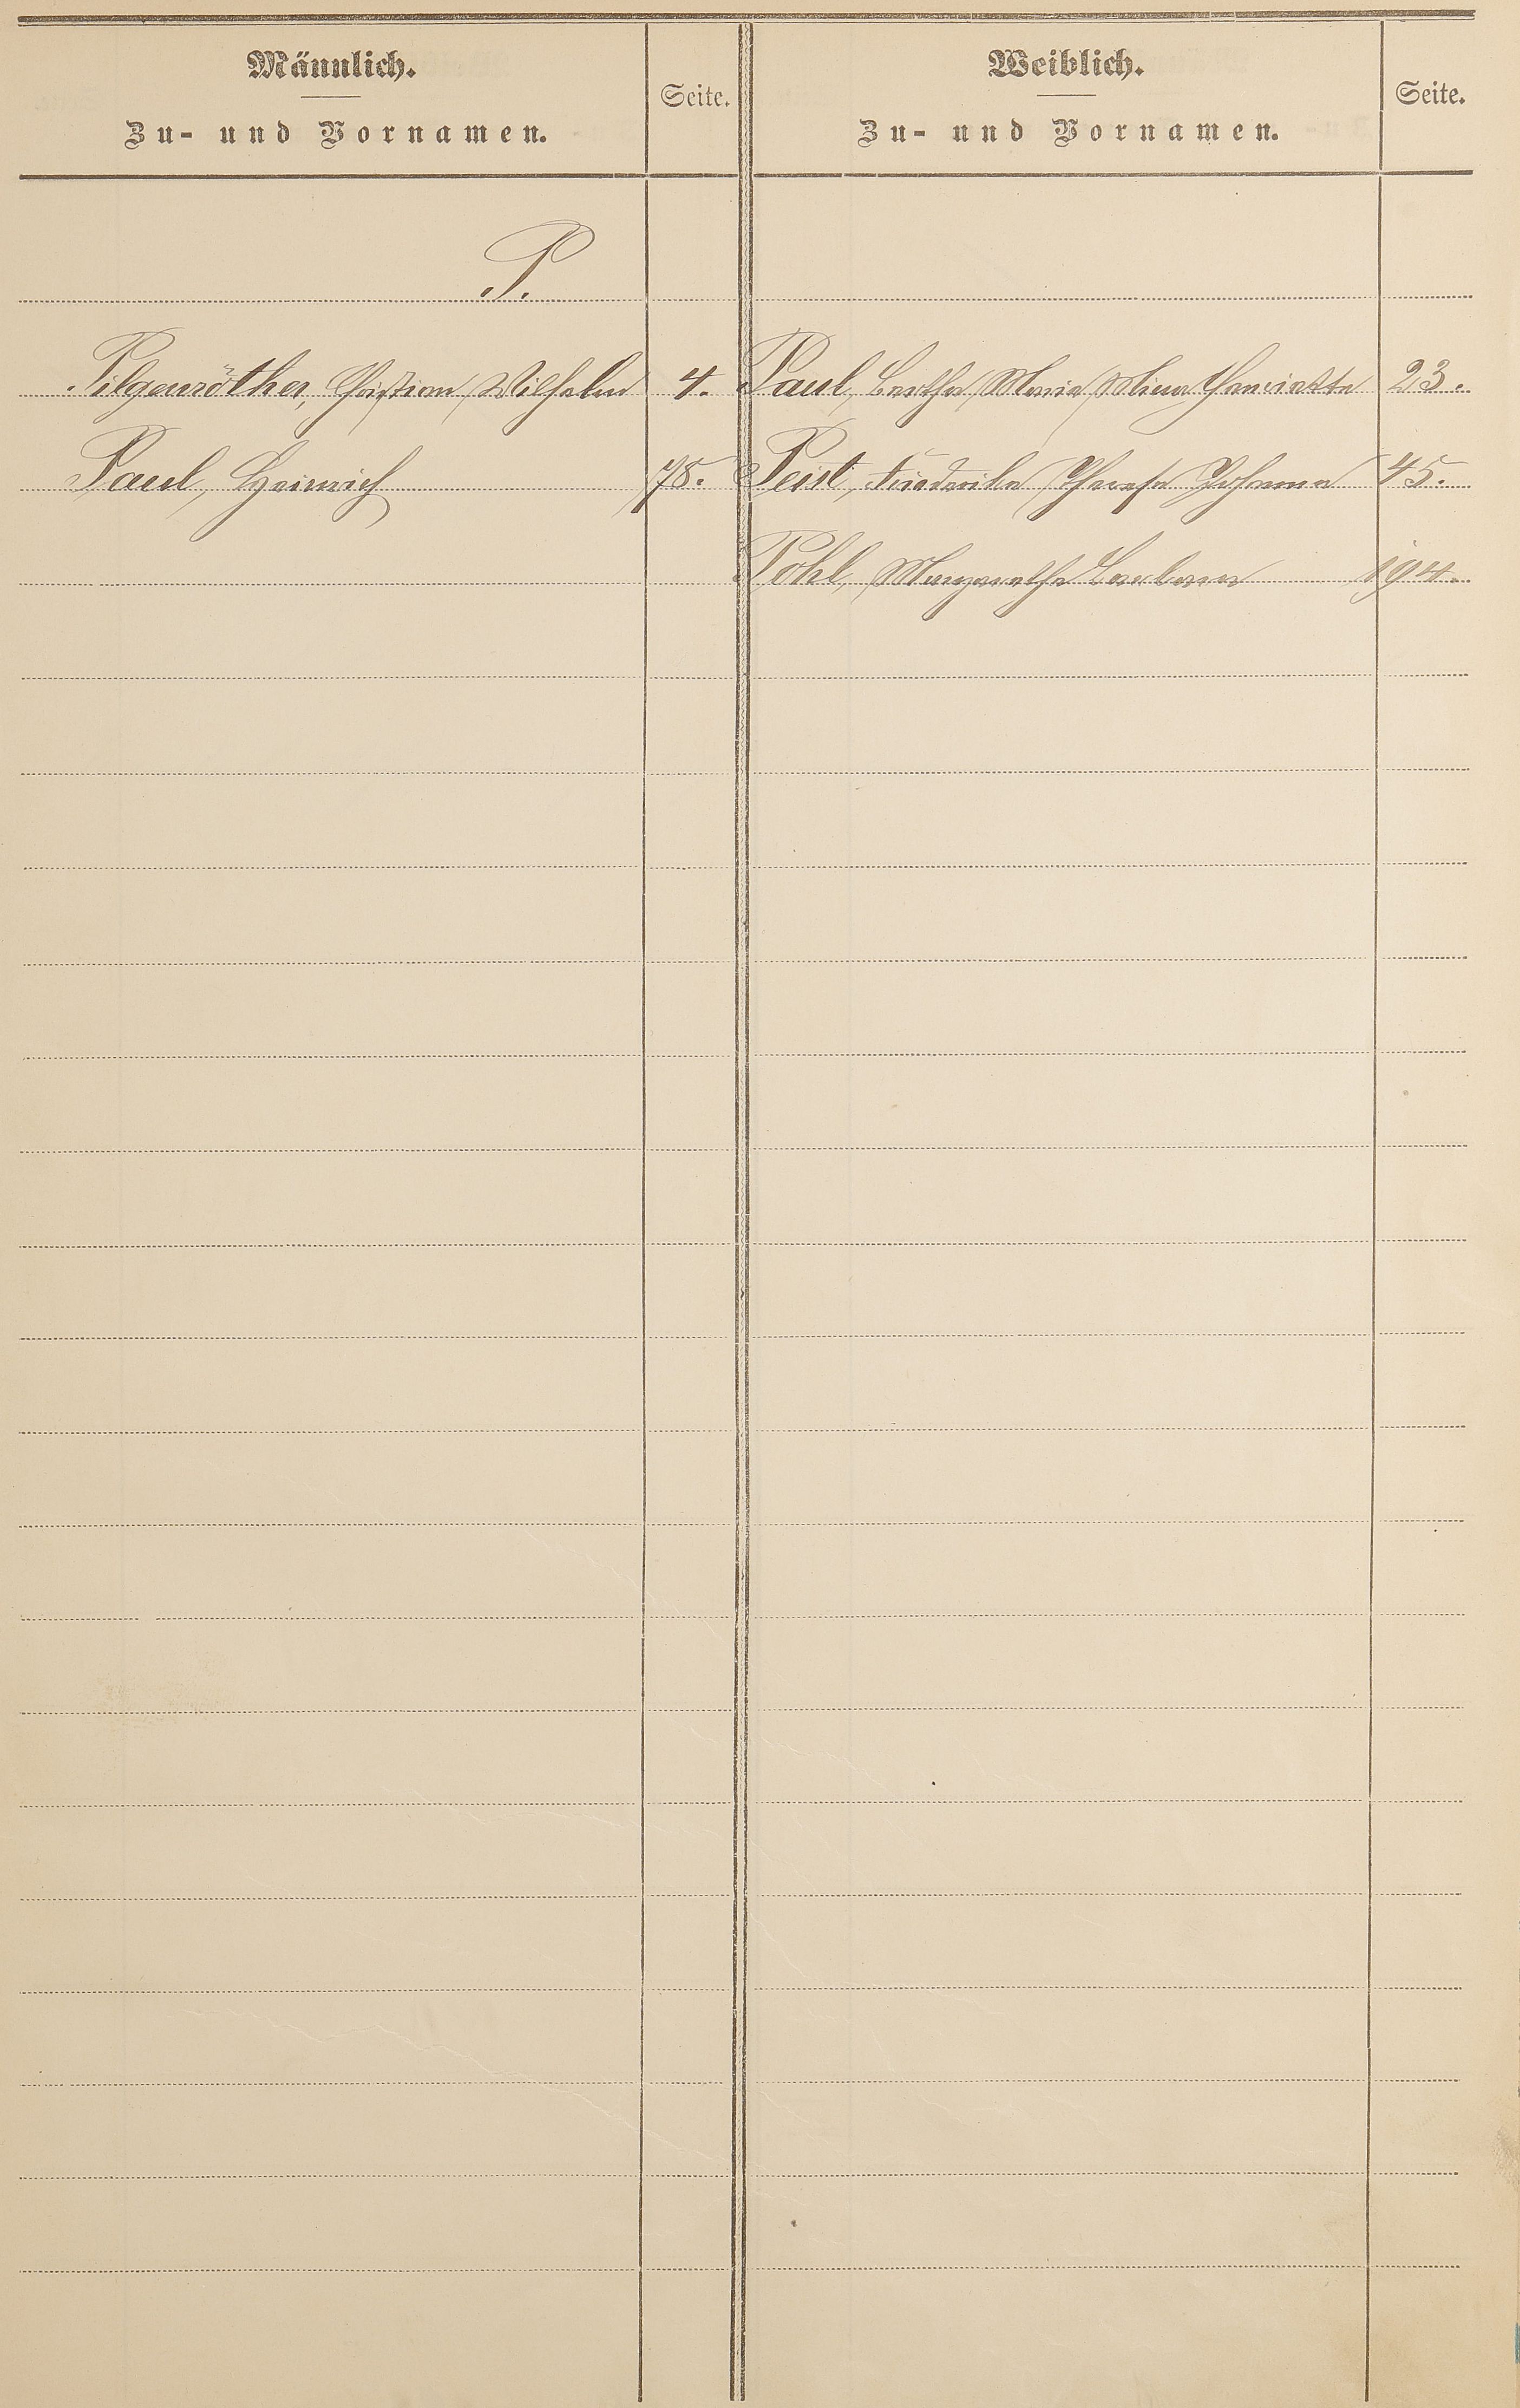 Männlich.
Zu- und Vornamen.
Seite.
Weiblich.
Zu- und Vornamen.
Seite.
P.
Pilgenröther, Christian Wilhelm 4. Paul, Bertha Maria Mina Henriette 23.
Paul, Heinrich 78. Peist, Friederike Therese Johanna 45.
Pohl, Margarethe Barbara 194.